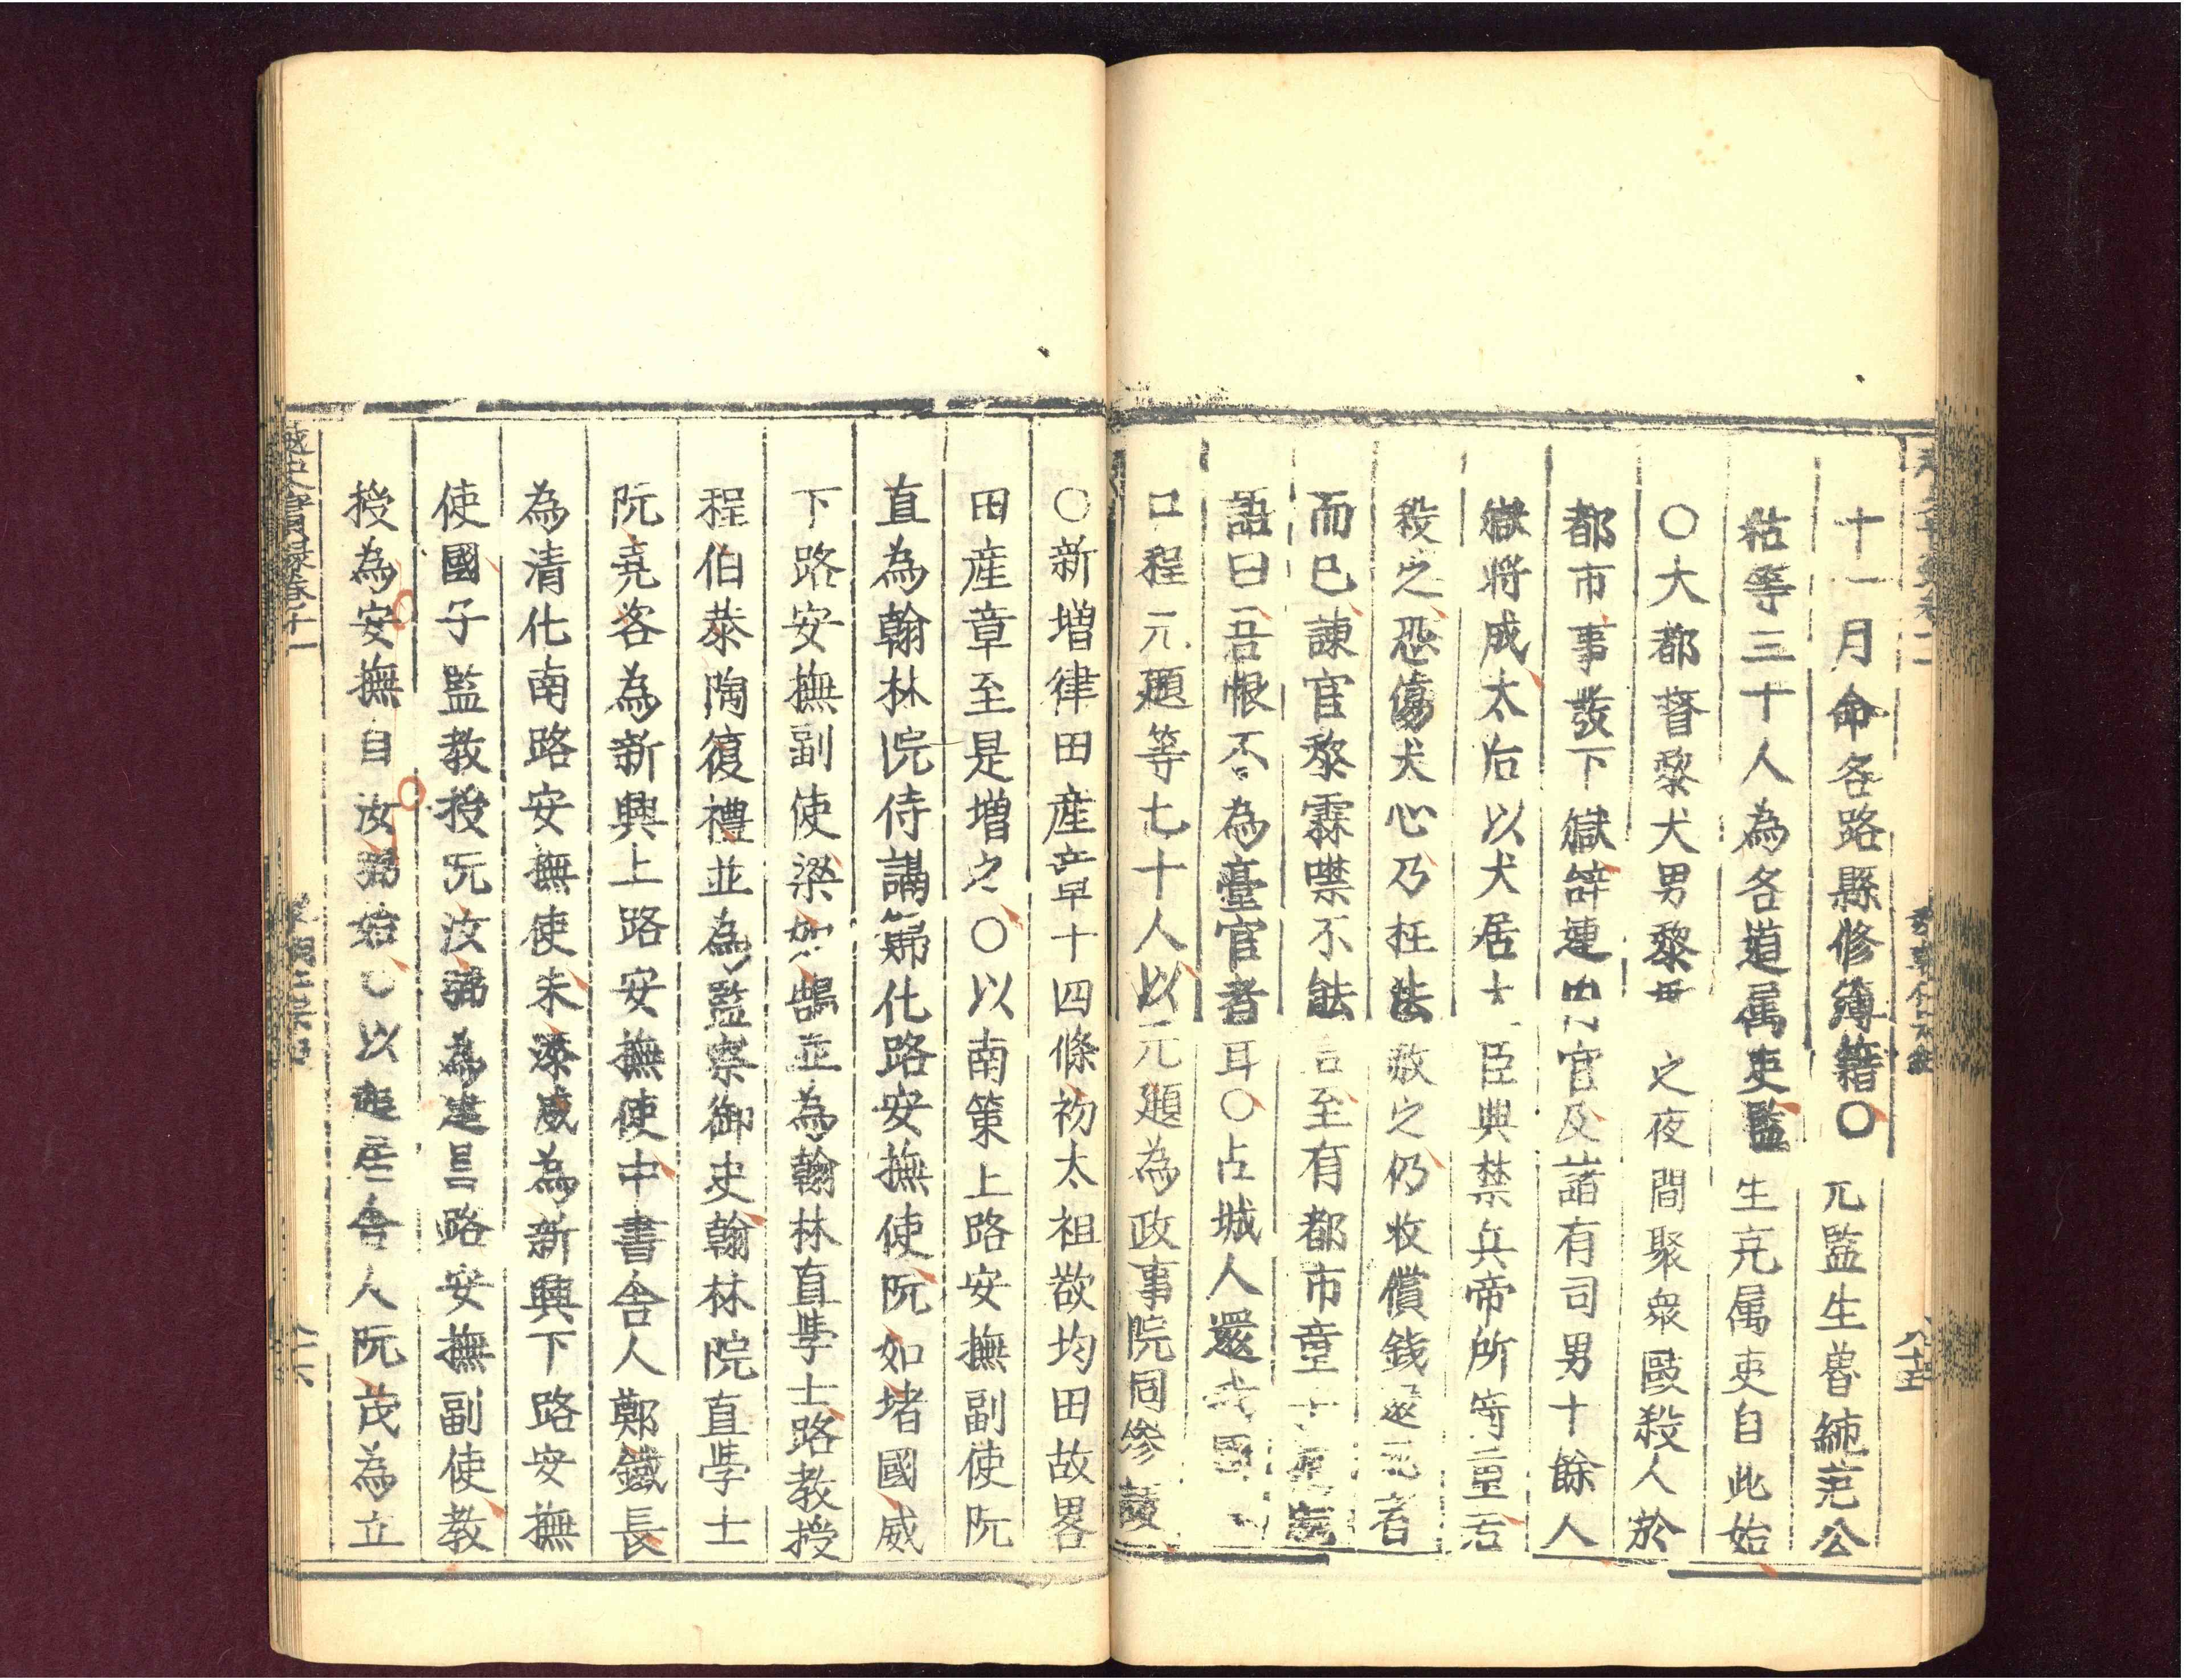 十一月命各路縣修簿籍〇 監生曾純范公
拈等三十人為各道属吏監生充属吏自此始
〇大都督黎犬男黎 之夜間聚衆毆殺人於
都市事發下獄辞連 官及諸有司男十餘人
獄將成太后以犬居大臣典禁兵帝所 重
殺之恐傷犬心乃枉法赦之仍收償錢 死者
而已諌官黎霖噤不能言至有都市童
語曰吾恨不為臺官者耳〇占城人還我國
口程元題等七十人以元題為政事院同參議
〇新増律田産章十四條初太祖欲均田故畧
田産章至是増之〇以南策上路安撫副使阮
直為翰林院侍講歸化路安撫使阮如堵國威
下路安撫副使梁如鵠並為翰林直學士路教授
程伯恭陶復禮並為監察御史翰林院直學士
阮堯咨為新興上路安撫使中書舍人鄭鐵長
為清化南路安撫使朱添威為新興下路安撫
使國子監教授阮汝弼為建昌路安撫副使教
授為安撫自汝弼始〇以起居舍人阮茂為立
越史實録卷十一
八十五